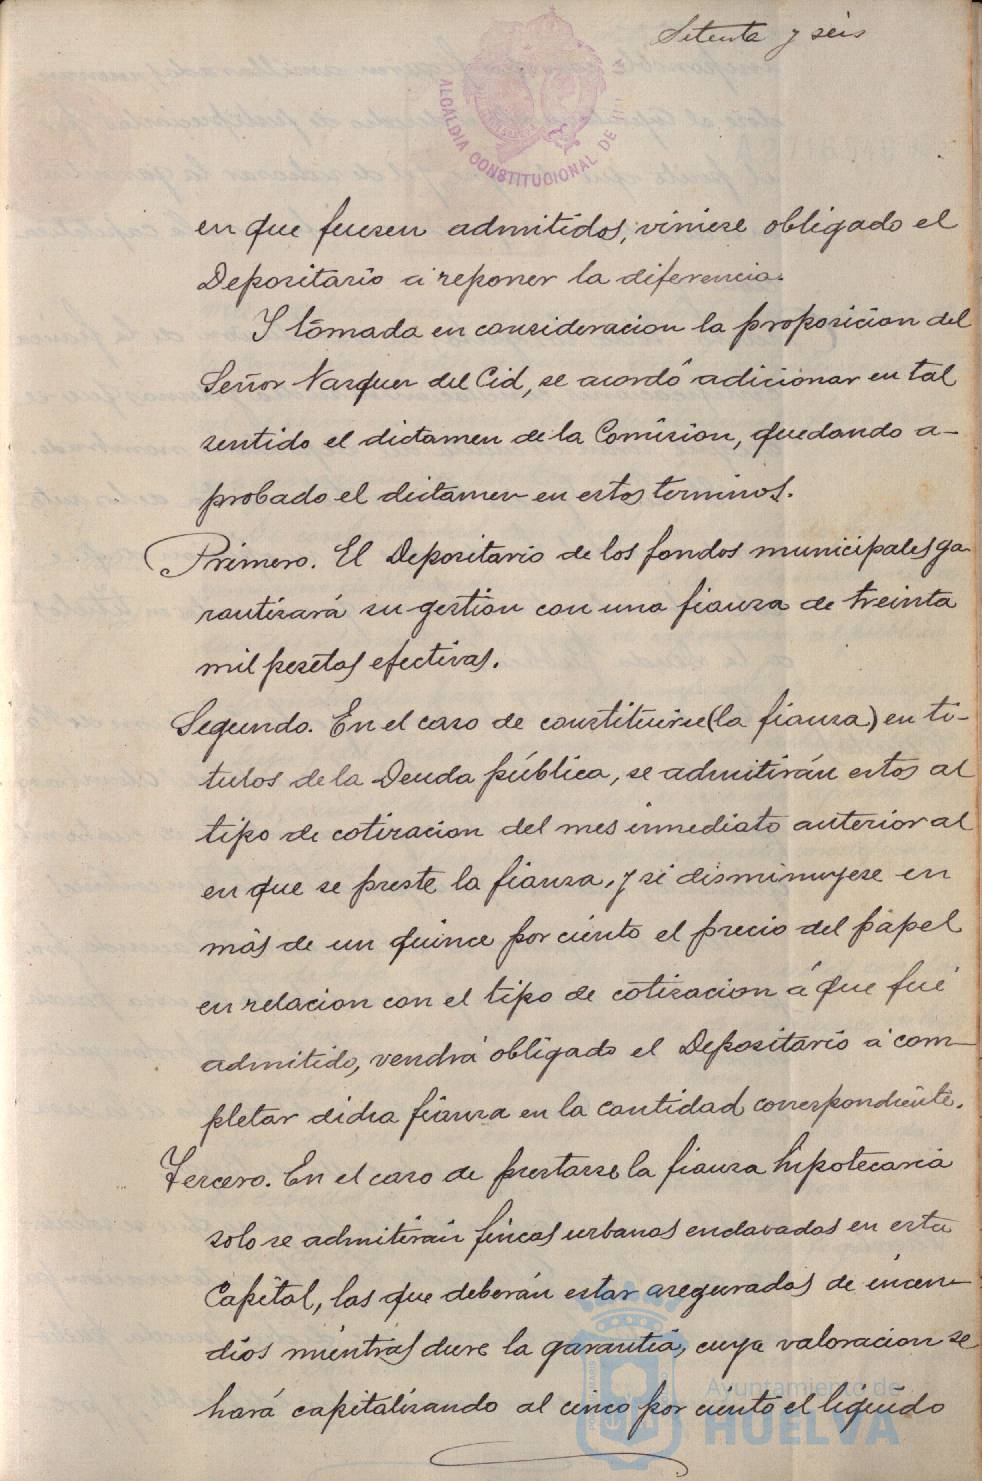 Setenta y seis
ALCALDIA CONSTITUCIONAL DE
en que fuesen admitidos, viniese obligado el
Depositario á reponer la diferencia.
Y tomada en consideracion la proposicion del
Señor Vazquez del Cid, se acordó adicionar en tal
sentido el dictamen de la Comision, quedando a-
probado el dictamen en estos terminos.
Primero. El Depositario de los fondos municipales ga-
rantizará su gestion con una fianza de treinta
mil pesetas efectivas.
Segundo. En el caso de constituirse (la fianza) en ti-
tulos de la Deuda pública, se admitirán estos al
tipo de cotizacion del mes inmediato anterior al
en que se preste la fianza, y si disminuyese en
más de un quince por ciento el precio del papel
en relacion con el tipo de cotizacion á que fué
admitido, vendrá obligado el Depositario á com-
pletar dicha fianza en la cantidad correspondiente.
Tercero. En el caso de prestarse la fianza hipotecaria
solo se admitirán fincas urbanas enclavadas en esta
Capital, las que deberán estar aseguradas de incen-
dios mientras dure la garantia, cuya valoracion se
hará capitalizando al cinco por ciento el liquido
Ayuntamiento de
HUELVA